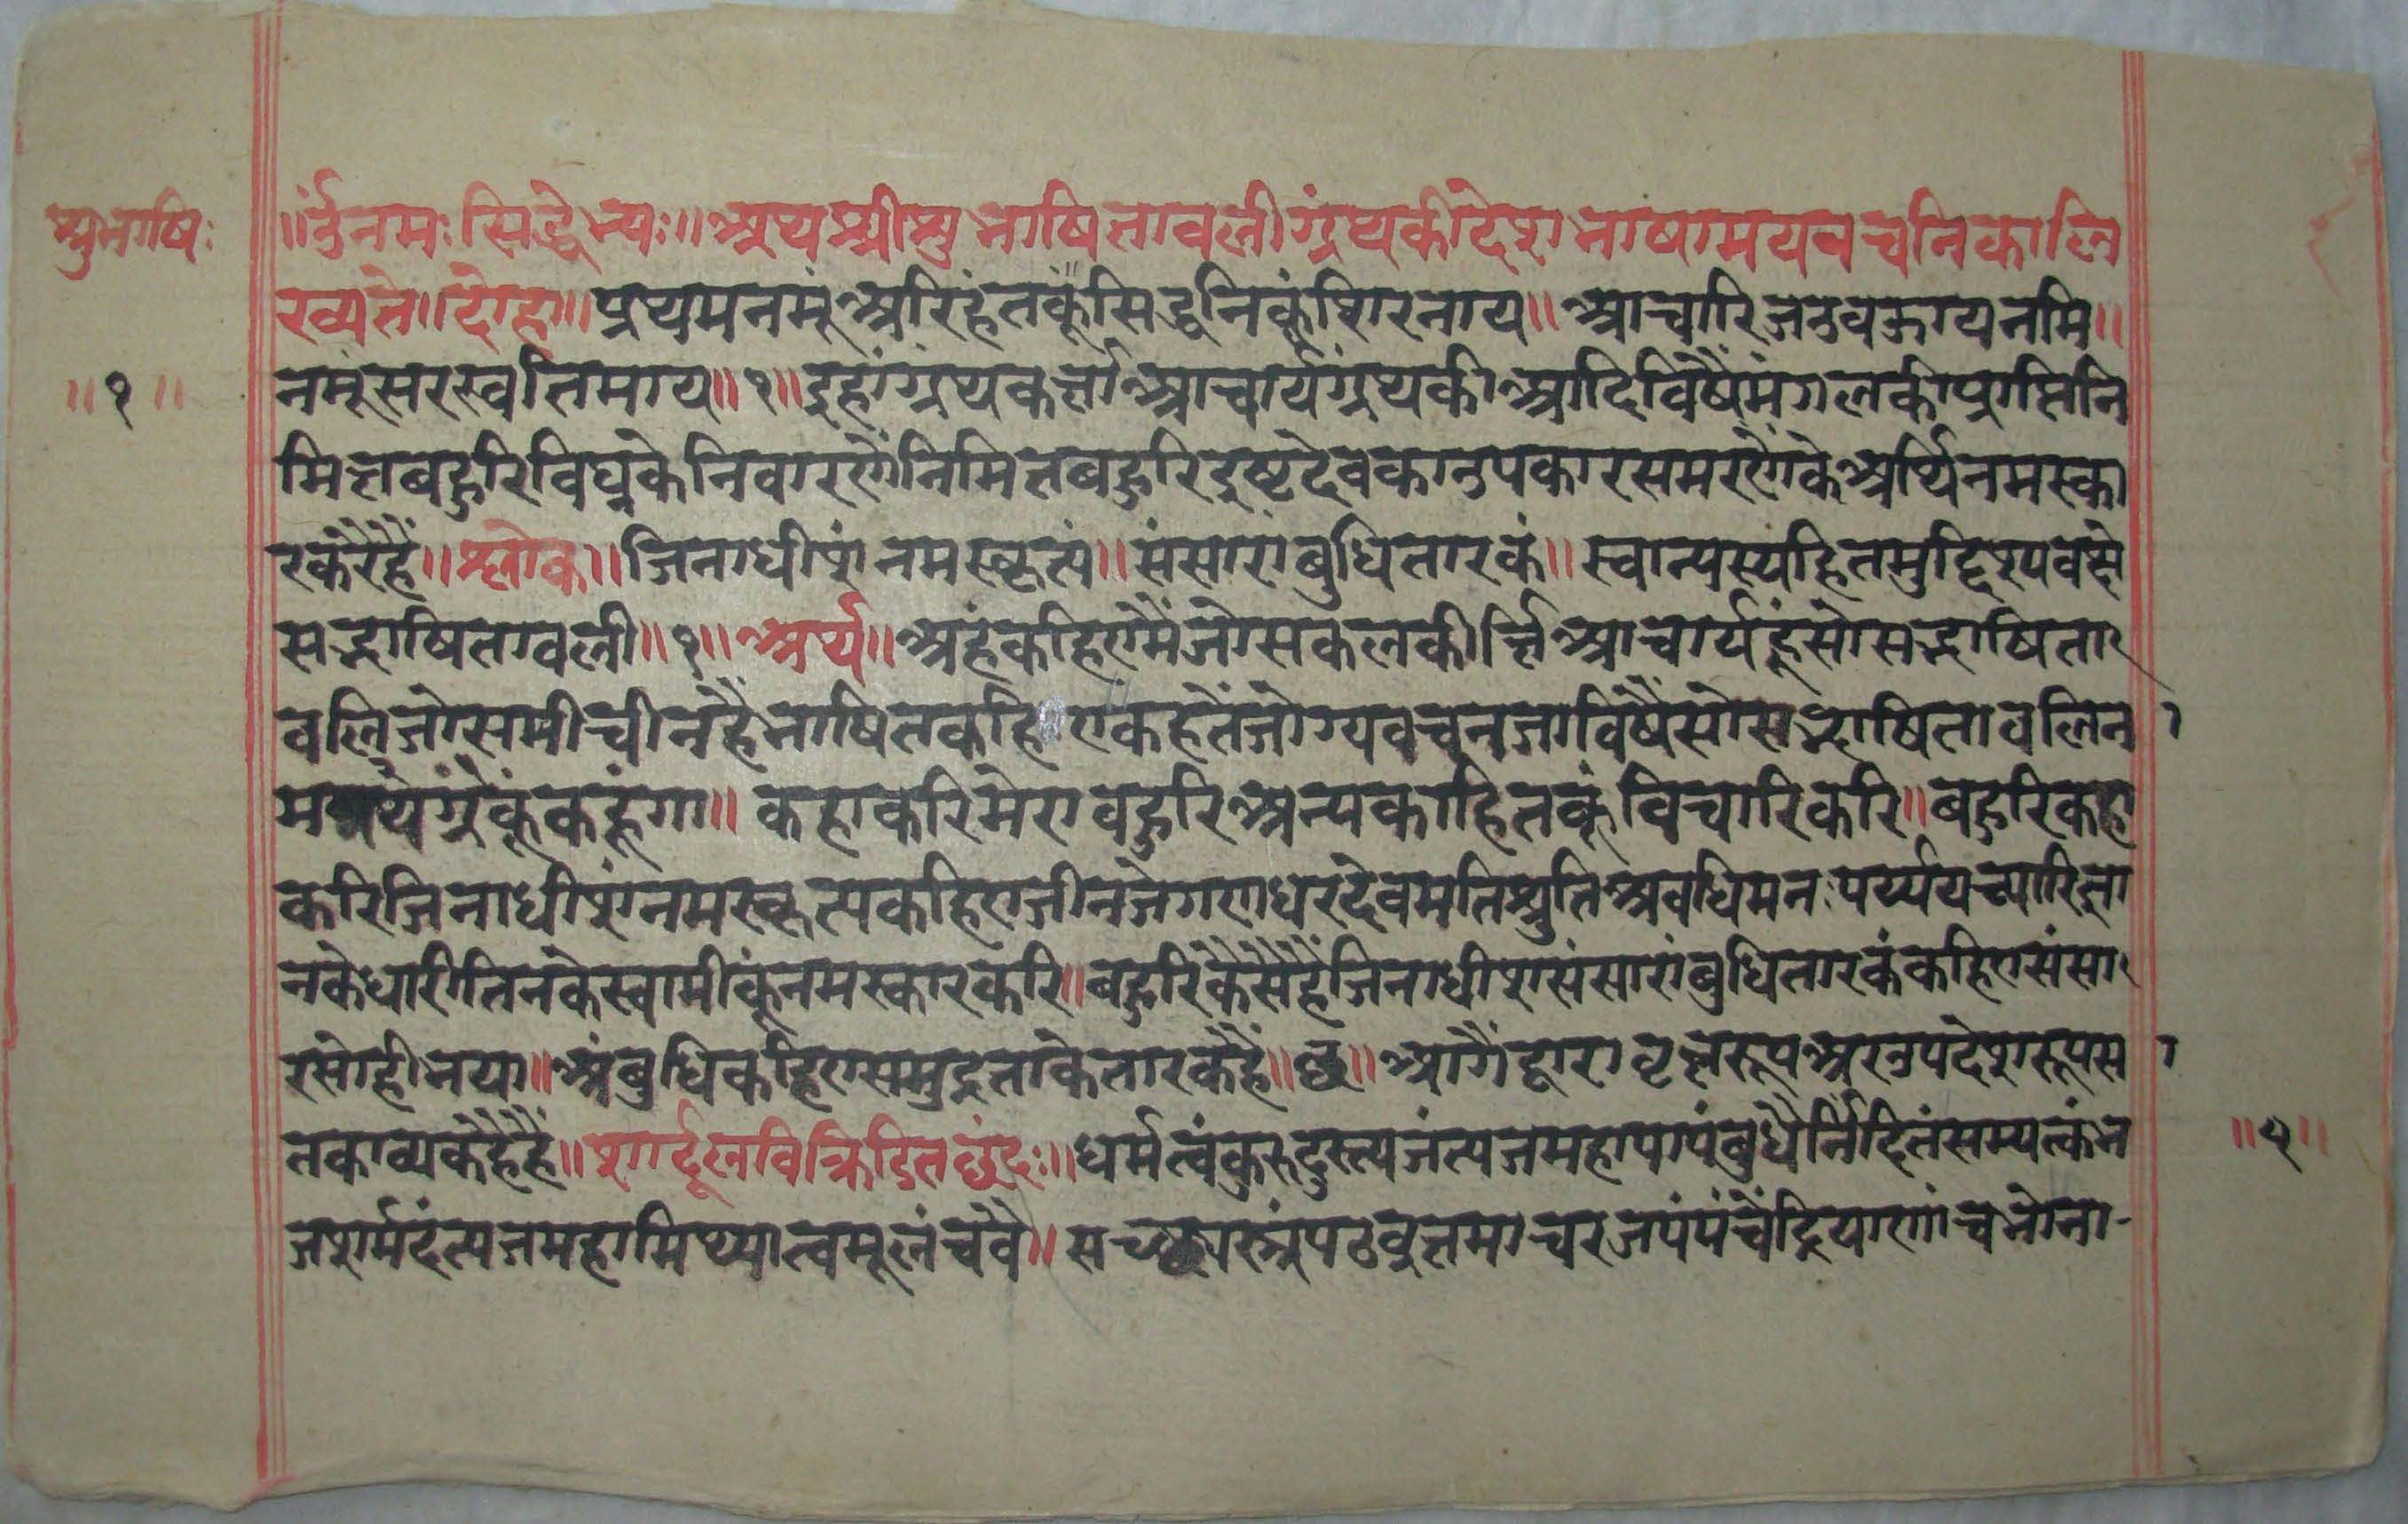 श्रुभाषि:
॥र्उनमः सिद्धेभ्यः॥अथश्रीश्रुभाषितावलीग्रंथकीदेशभाषामयवचनिकालि
ख्यते॥दोहा॥प्रथमनमूंअरिहंतकूंसिद्धनिकूंशिरनाय॥आचारिजउवझायनमि॥
॥१॥
नमूंसरस्वतिमाय॥१॥इहांग्रंथकर्त्ताआचार्यग्रंथकीआदिविषैंमंगलकीप्राप्तिनि
मित्तबहुरिविघ्नकेनिवारणैंनिमित्तबहुरिइष्टदेवकाउपकारसमरणैंकेअर्थिनमस्का
रकरैंहैं॥श्लोक॥जिनाधीशंनमस्कृत्यं॥संसारांबुधितारकं॥स्वान्यस्यहितमुद्दिश्यवक्ष्ये
सद्भाषितावली॥१॥अर्थ॥अहंकहिएमैंजोसकलकीर्त्तिआचार्यहूंसोसद्भाषिता
वलिजोसमीचीनहैंभाषितकहिएकहतैंजोग्यवचनजाविषैंसोसद्भाषितावलिन
मग्रंथकूंकहूंगा॥कहाकरिमेरावहुरिअन्यकाहितकूंविचारिकरि॥बहुरिकहा
करिजिनाधीशंनमस्कृत्यकहिएजीनजेगणधरदेवमतिश्रुतिअवधिमनःपर्य्ययच्यारिज्ञा
नकेधारीतिनकेस्वामीकूंनमस्कारकरि॥बहुरिकैसैहैंजिनाधीशसंसारांबुधितारकंकहिएसंसा
रसोहीभया॥अंबुधिकहिएसमुद्रताकेतारकहैं॥छ॥आगैंद्वारावृत्तरूपअरउपदेशरूपस
तकाव्यकहैहैं॥शार्दूलविक्रिडितछंदः॥धर्मत्वंकुरुदुस्त्यजंत्यजमहापापंबुधैर्निंदितंसम्यत्कंभ
॥१॥
जशर्मदंत्यजमहामिथ्यात्वमूलंचवै॥सच्छास्त्रंपठवृत्तमाचरजपंपंचेंद्रियाणांचभोना-